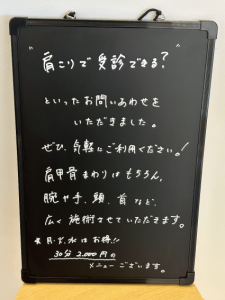 "肩こりで受診できる?"
といったお問いあわせを
いただきました。
ぜひ、気軽にご利用ください!
肩甲骨まわりはもちろん、
腕や手、頭、首など、
広く施術させていただきます。
★月・火・水はお得!!
30分2,000円の
メニューございます。